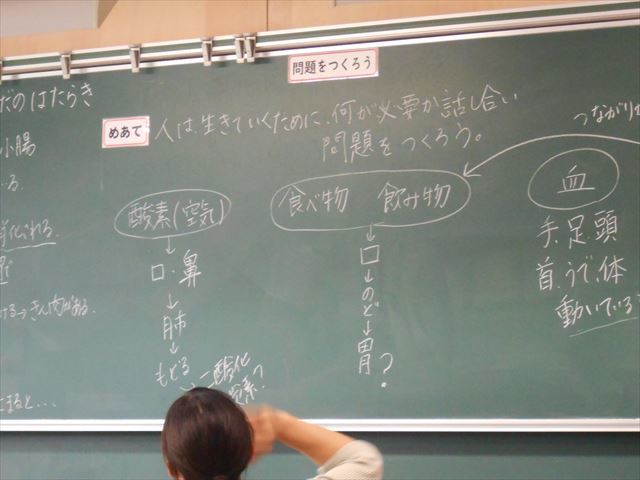 問題をつくろう
めあて
人は、生きていくために、何が必要か話し合い
問題をつくろう。
だのはたらき
小腸
る。
つながり
酸素(空気)
↓
口・鼻
↓
肺
↓
もどる
二酸化
炭素?
食べ物 飲み物
↓
口
↓
のど
↓
胃?
血
手、足、頭
首、うで、体
動いている
きん肉がある。
まると…